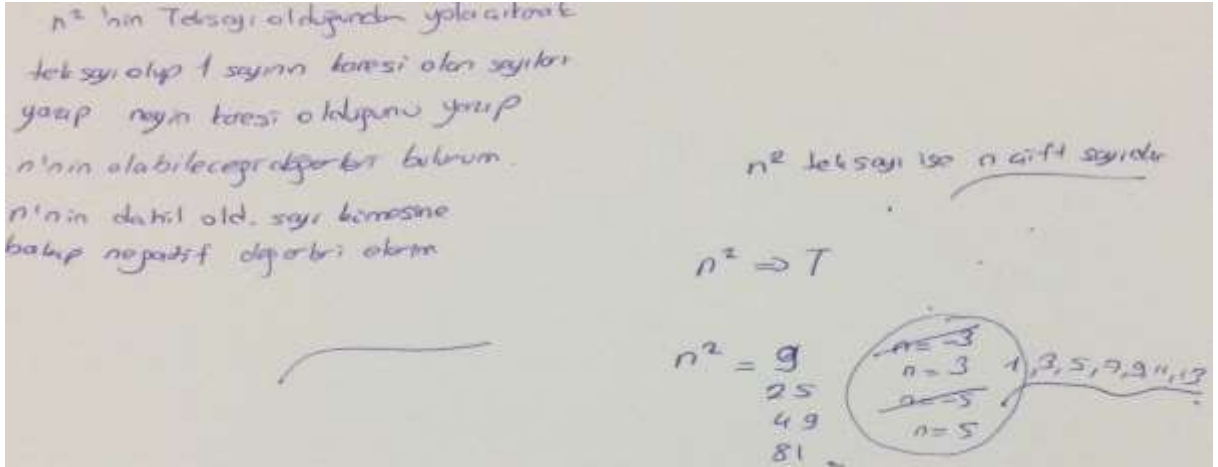 n² 'nin Teksayı olduğundan yola çıkarak
tek sayı olup 1 sayının karesi olan sayıları
yazıp neyin karesi olduğunu yazıp
n'nin alabileceği değerleri bulurum.
n'nin dahil old. sayı kümesine
bakıp negatif değerleri alırım
n² tek sayı ise n çift sayıdır
n² ⇒ T
n² = 9
25
49
81
n = -3
n = 3
n = -5
n = 5
1, 3, 5, 7, 9, 11, 13